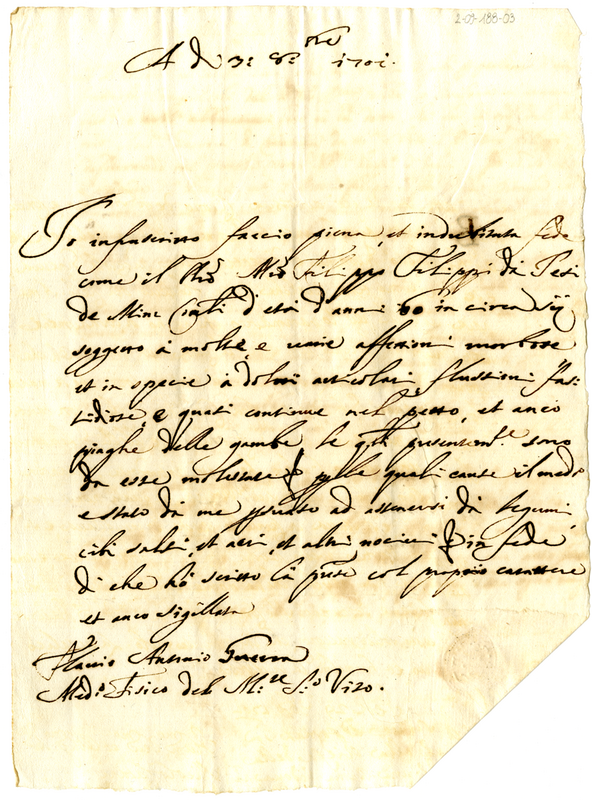 2-03-188-03
A dì 3: 8:bre 1701.
Io infrascritto faccio piena, et indubitata fede
come il Filippo Filippi da Jesi
de Min: Con:li d'età d'anni 60 in circa sij
soggetto à molte, e varie affezioni morbose
et in specie à dolori articolari, flussioni fasti
tidiose, e quasi continue nel petto, et anco
piaghe delle gambe, le q:li presentem:te sono
da esse molestate, p quali cause il med:o
e stato dà me ad astenersi dà legumi
cibi salsi, et acri, et altri nocivi in fede
di che hò scritto la p:nte col proprio carattere
et anco sigillata
Flavio Antonio Guerra
Med:o Fisico del M:te S:to Vito.